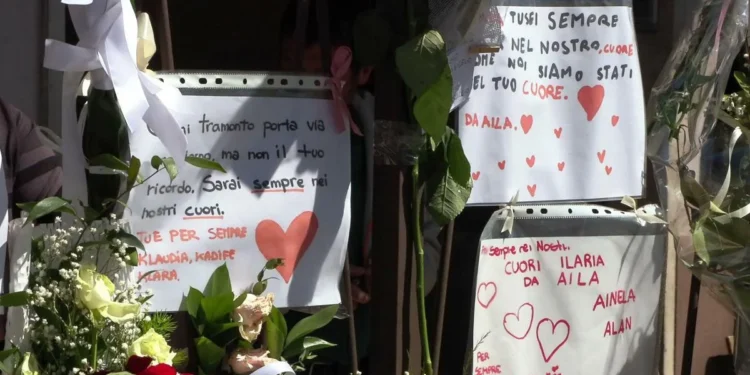 tramonto porta via
ma non il tuo
ricordo. Sarai sempre nei
nostri cuori.
TUE PER SEMPRE
KLAUDIA, KADIFE
KLARA.
TU SEI SEMPRE
NEL NOSTRO, CUORE
COME NOI SIAMO STATI
NEL TUO CUORE.
DA AILA.
Sempre nei Nostri.
CUORI ILARIA
DA AILA
AINELA
ALAN
PER
SEMPRE